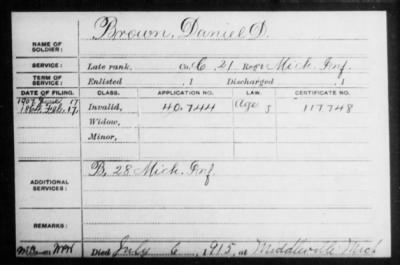 Brown, Daniel D.
NAME OF SOLDIER:
SERVICE: Late rank, Co. C, 21 Reg't Mich. Inf.
TERM OF SERVICE: Enlisted , 1 Discharged , 1
DATE OF FILING. CLASS. APPLICATION NO. LAW. CERTIFICATE NO.
1907 17 Invalid, 40,744 Age 117,748
1864 Feb. 17, Widow,
Minor,
B, 28 Mich. Inf.
ADDITIONAL SERVICES:
REMARKS:
Died July 6, 1915, at Middleville Mich